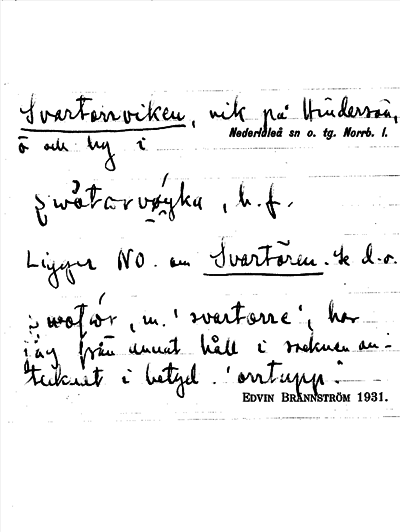 Svartorrviken, vik på Hindersön,
Nederluleå sn o. tg. Norrb. l.
ö och by i
b.f.
Ligger NO. om Svartören. Se d.o.
m. 'svartorre', har
jag från annat håll i socknen an-
tecknat i betyd. 'orrtupp'.
EDVIN BRÄNNSTRÖM 1931.